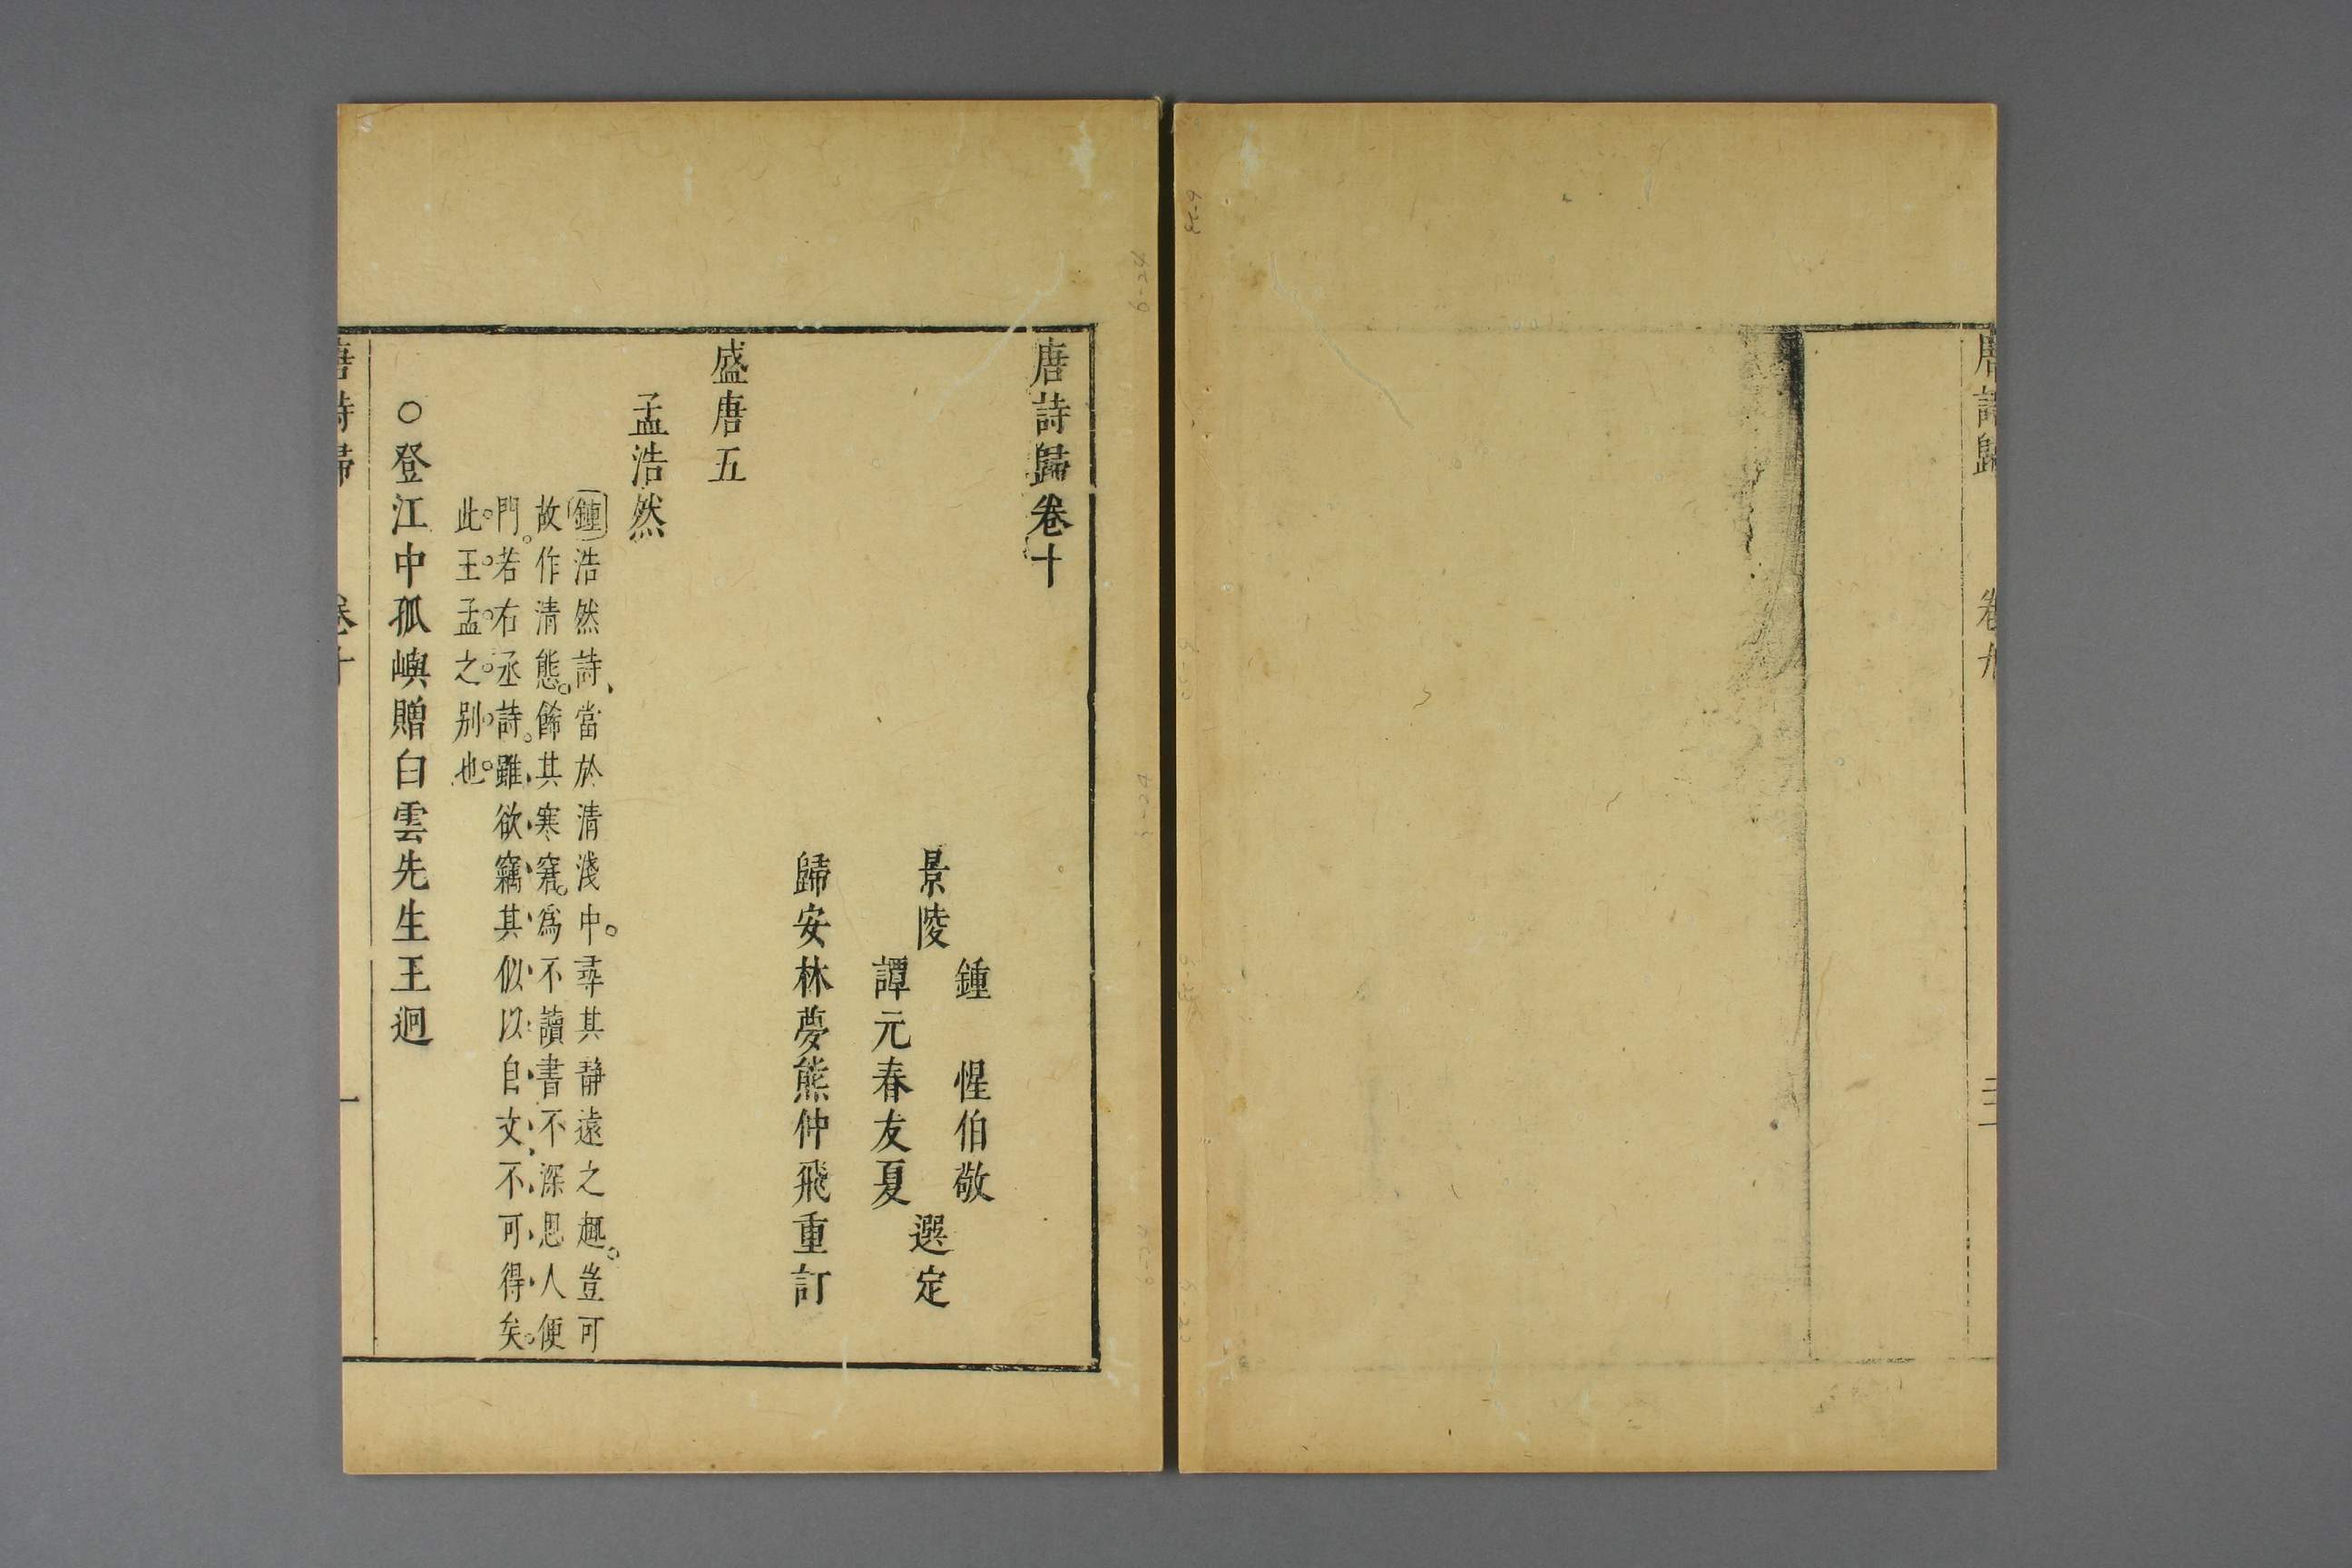 唐詩歸
卷九
唐詩歸卷十
鍾惺伯敬
景陵 選定
譚元春友夏
歸安林夢熊仲飛重訂
盛唐五
孟浩然
鍾浩然詩、當於清淺中。尋其靜遠之趣。豈可
故作清態。餙其寒窘。為不讀書不深思人便
門。若右丞詩。雖欲竊其似以自文、不可得矣。
此王孟之别也
○登江中孤嶼贈白雲先生王迥
唐詩歸 卷十 一